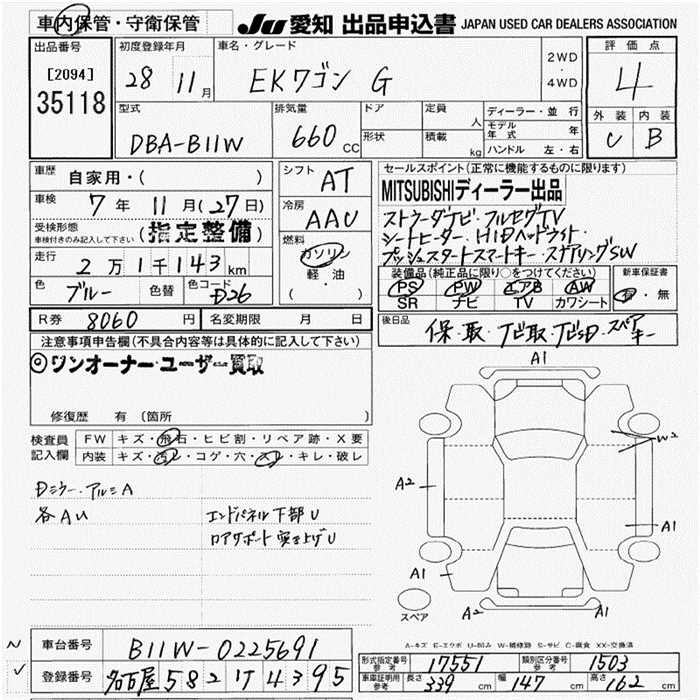 車内保管・守衛保管 JU 愛知 出品申込書 JAPAN USED CAR DEALERS ASSOCIATION
出品番号 初度登録年月 車名・グレード 2WD・4WD 評価点
[2094] 35118 28 11月 EKワゴン G 4
型式 排気量 ドア 定員 人 ディーラー・並行 外装 内装
DBA-B11W 660 CC 形状 積載 kg モデル年式 年 C B
ハンドル 左・右
車歴 自家用・( ) シフト AT セールスポイント(正常に機能するものに限ります)
車検 7年 11月(27日) 冷房 AAC MITSUBISHIディーラー出品
受検形態 車検付きのみ記入して下さい (指定整備) 燃料 ガソリン
ストラーダナビ・フルセグTV
シートヒーター・HIDヘッドライト・
プッシュスタートスマートキー・ステアリングSW
走行 2万1千143km 軽・油 ( )
装備品(純正品に限り○をつけてください) 新車保証書
色 ブルー 色替 色コード D26 PS PW エアB AW 有・無
SR ナビ TV カワシート
R券 8060円 名変期限 月 日 後日品 保・取・ナビ取・ナビSD・スペアキー
注意事項申告欄(不具合内容等は具体的に記入して下さい)
◎ワンオーナー・ユーザー買取
修復歴 有(箇所
検査員記入欄 FW キズ・飛石・ヒビ割・リペア跡・X要
内装 キズ・汚レ・コゲ・穴・スレ・キレ・破レ
Dミラー・アルミA
各AU エンドパネル下部U
ロアサポート突き上げU
A1
W2
A2
A1
A1 A1
スペア A2 A2
A-キズ E-エクボ U-凹み W-補修跡 S-サビ C-腐食 XX-交換済
車台番号 B11W-0225691
登録番号 名古屋 582 ワ 4395
形式指定番号 参考 17551 類別区分番号 参考 1503
車庫証明用 参考 長さ 339cm 幅 147cm 高さ 162cm